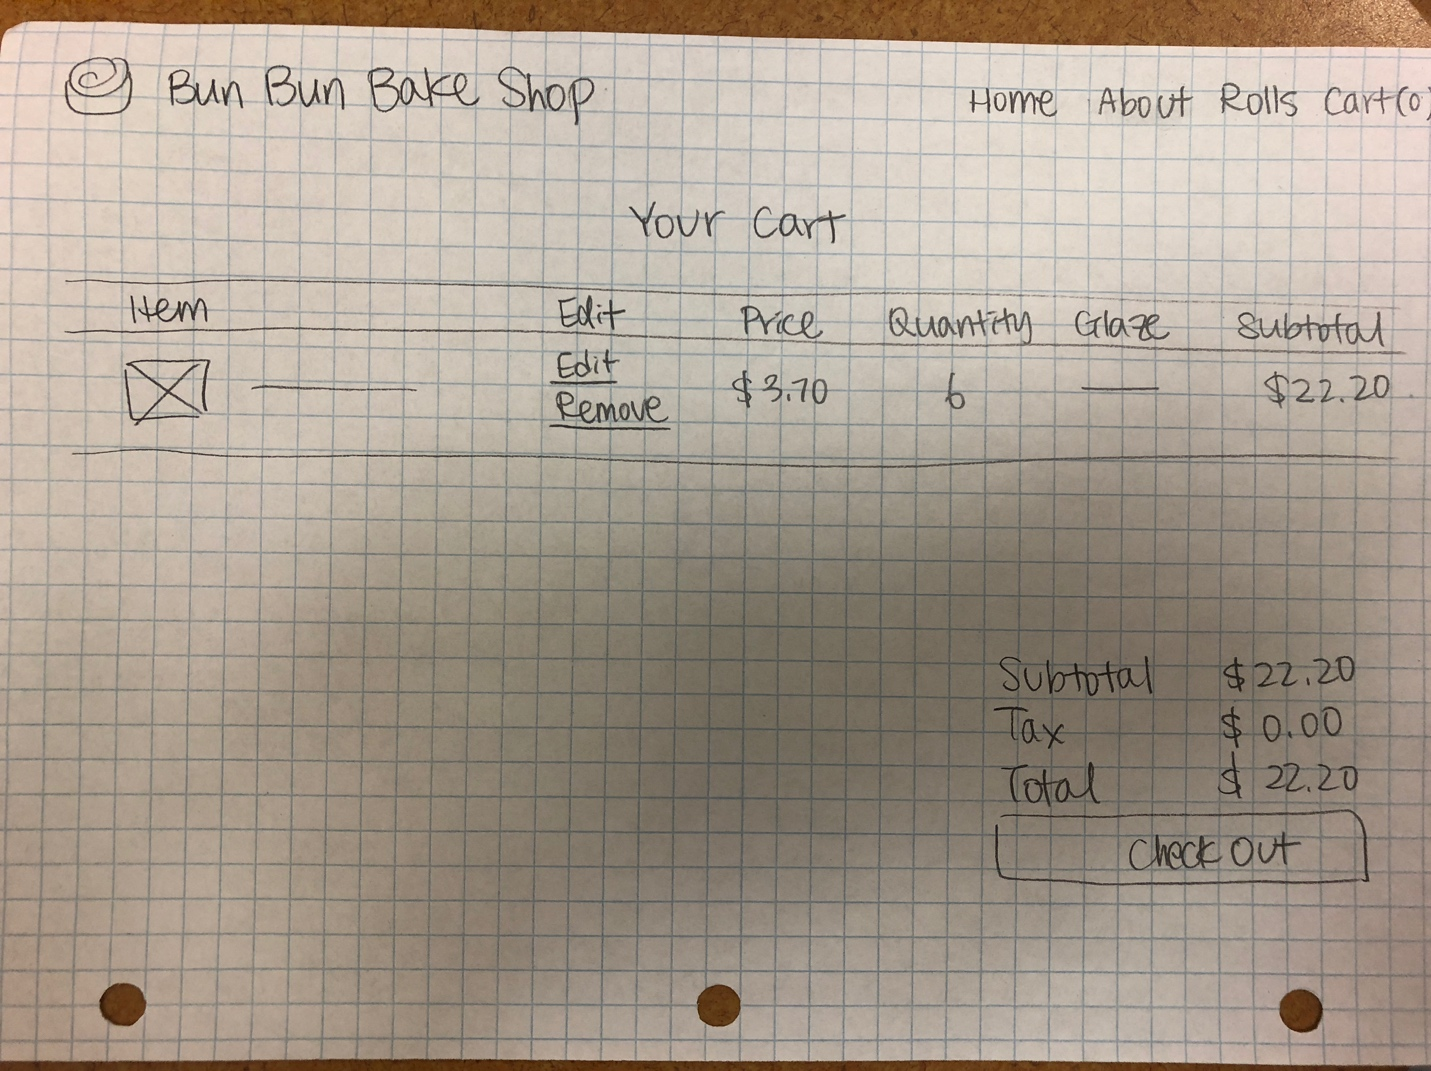 Bun Bun Bake Shop Home About Rolls Cart(0)
Your Cart
Item Edit Price Quantity Glaze Subtotal
Edit
Remove $3.70 6 $22.20
Subtotal $22.20
Tax $0.00
Total $22.20
Check Out